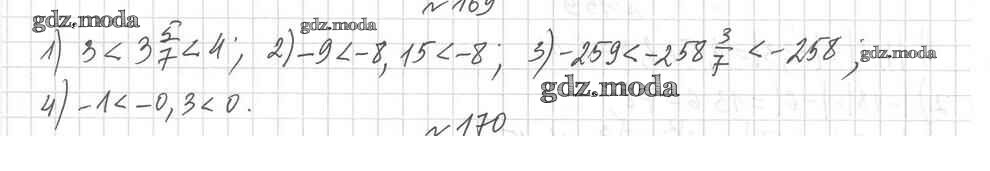 № 169
gdz.moda
gdz.moda
1) 3 < 3 5/7 < 4; 2) -9 < -8,15 < -8; 3) -259 < -258 3/7 < -258; gdz.moda
gdz.moda
4) -1 < -0,3 < 0.
№ 170